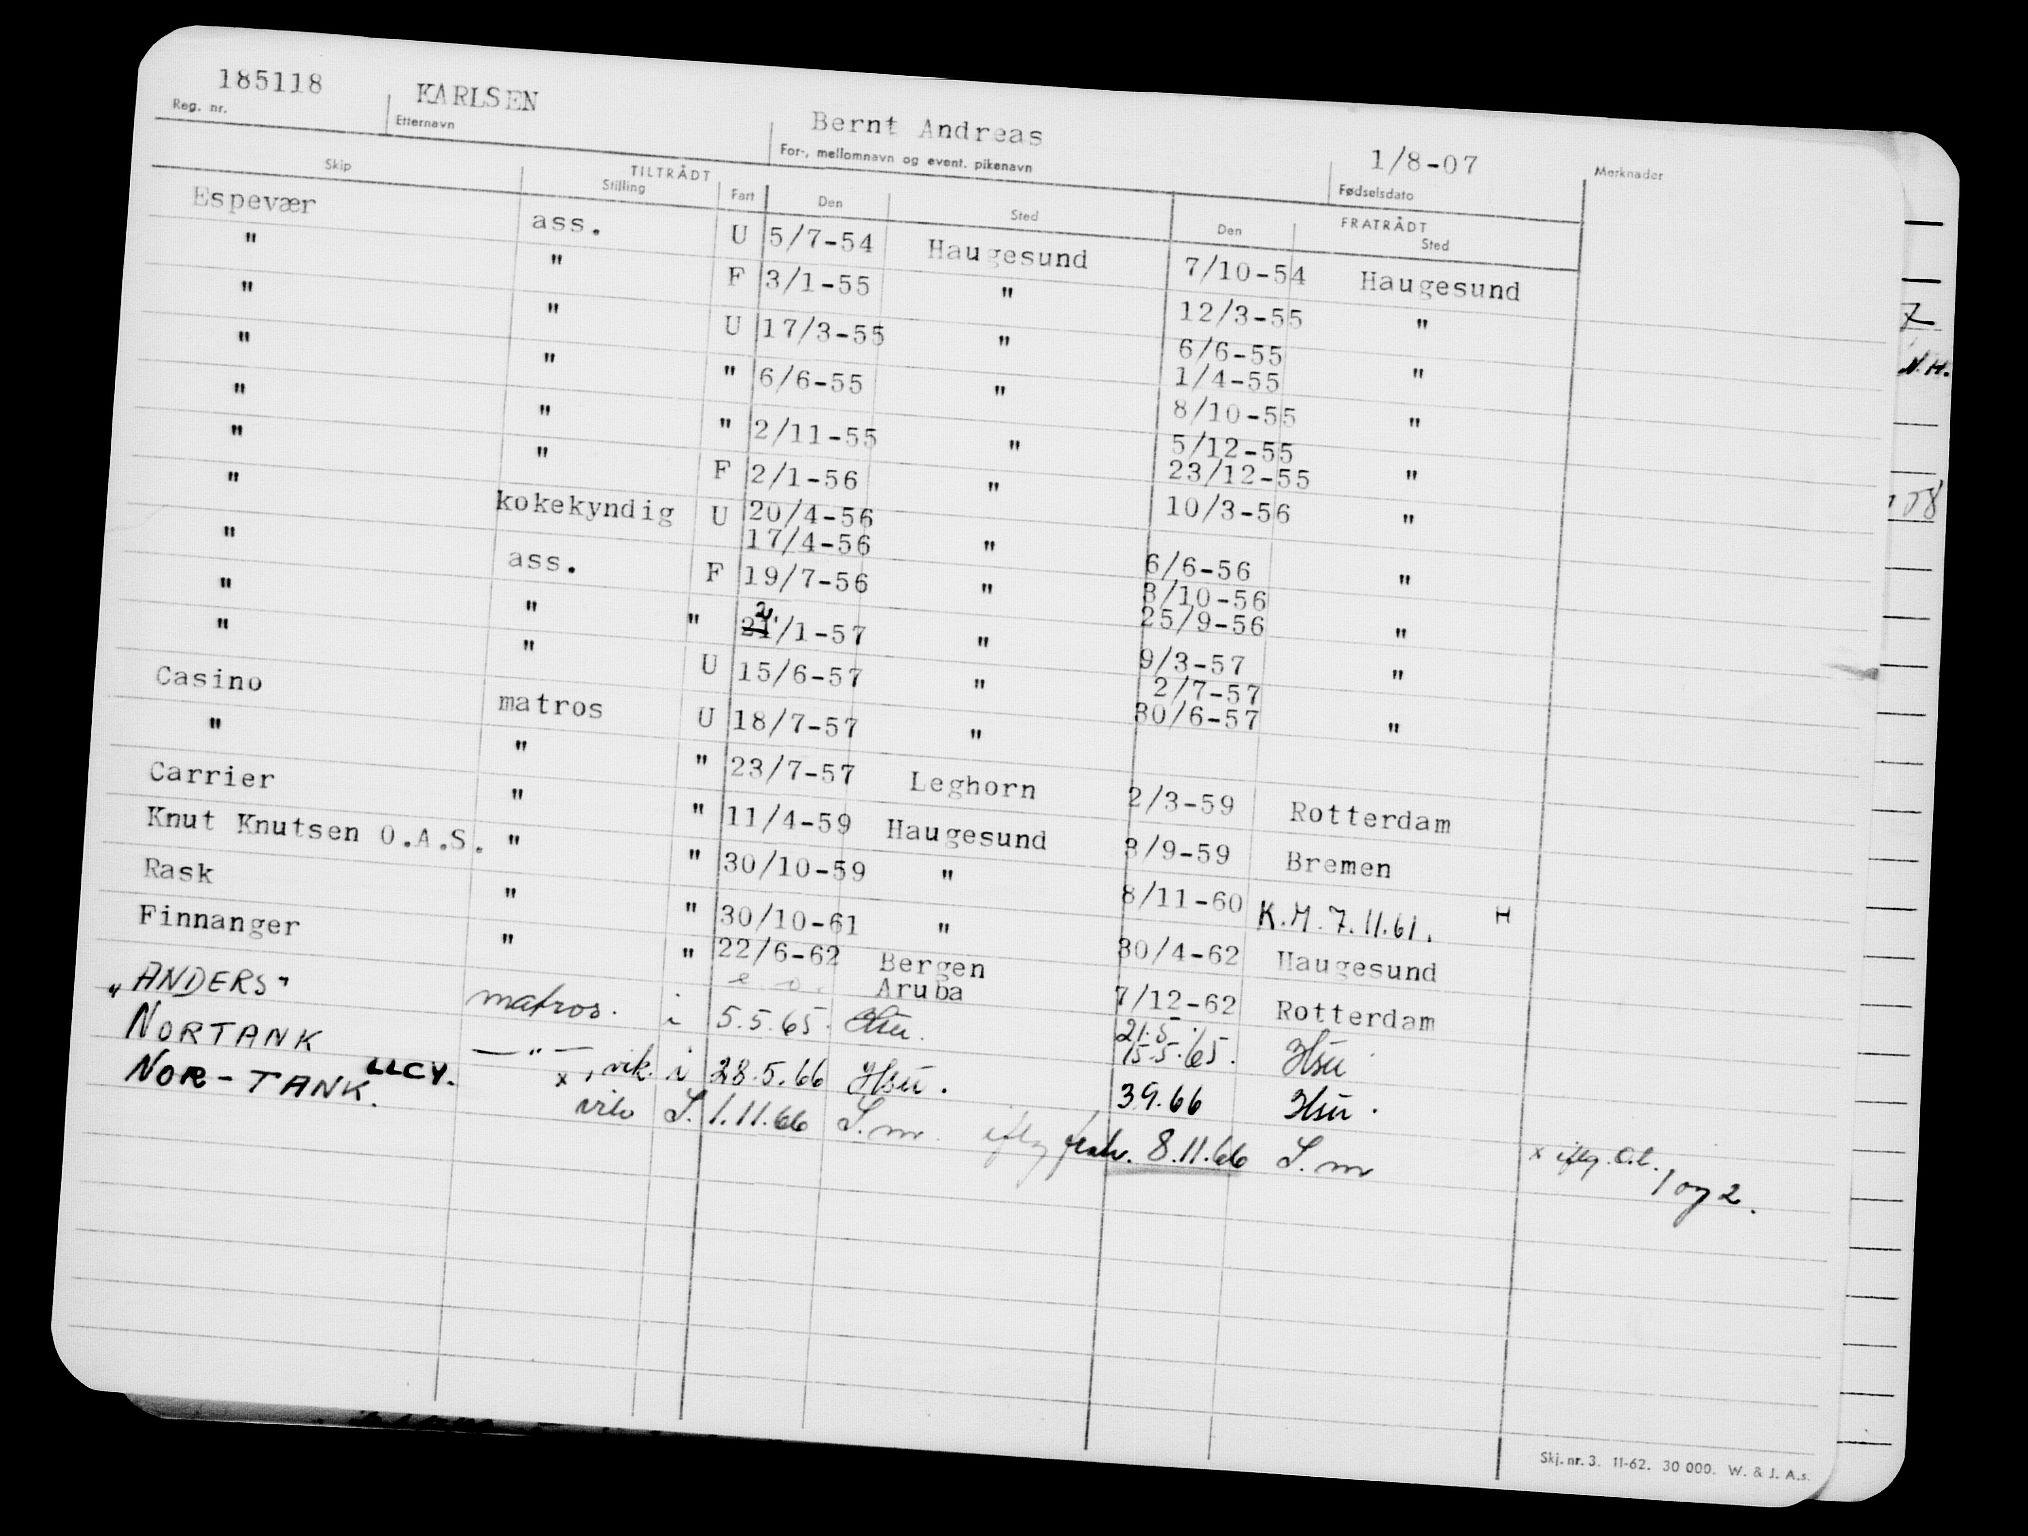 185118 KARLSEN Bernt Andreas 1/8-07
Reg. nr. Etternavn For-, mellomnavn og event. pikenavn Fødselsdato Merknader
TILTRÅDT FRATRÅDT
Skip Stilling Fart Den Sted Den Sted
Espevær ass. U 5/7-54 Haugesund 7/10-54 Haugesund
" " F 3/1-55 " 12/3-55 "
" " U 17/3-55 " 6/6-55 "
1/4-55
" " " 6/6-55 " 8/10-55 "
" " " 2/11-55 " 5/12-55 "
23/12-55
" " F 2/1-56 " 10/3-56 "
" kokekyndig U 20/4-56 " 6/6-56 "
17/4-56
" ass. F 19/7-56 " 3/10-56 "
25/9-56
" " " 21/1-57 " 9/3-57 "
2
" " U 15/6-57 " 2/7-57 "
30/6-57
Casino matros U 18/7-57 "
" " " 23/7-57 Leghorn 2/3-59 Rotterdam
Carrier " " 11/4-59 Haugesund 3/9-59 Bremen
Knut Knutsen O.A.S. " " 30/10-59 " 8/11-60 K.M. 7.11.61. H
Rask " " 30/10-61 " 30/4-62 Haugesund
Finnanger " " 22/6-62 Bergen 7/12-62 Rotterdam
Aruba
"ANDERS" matros. i 5.5.65. Hsu. 21.5.
15.5.65. Hsu
NORTANK — " — , vik. i 28.5.66 Hsu. 3.9.66 Hsu.
NOR-TANK. LLCY. x vik S. 1.11.66 S.m. iflg fratr. 8.11.66 S.m x iflg. O.l.
1 og 2.
Skj. nr. 3. 11-62. 30 000. W. & J. A.s.
N.H.